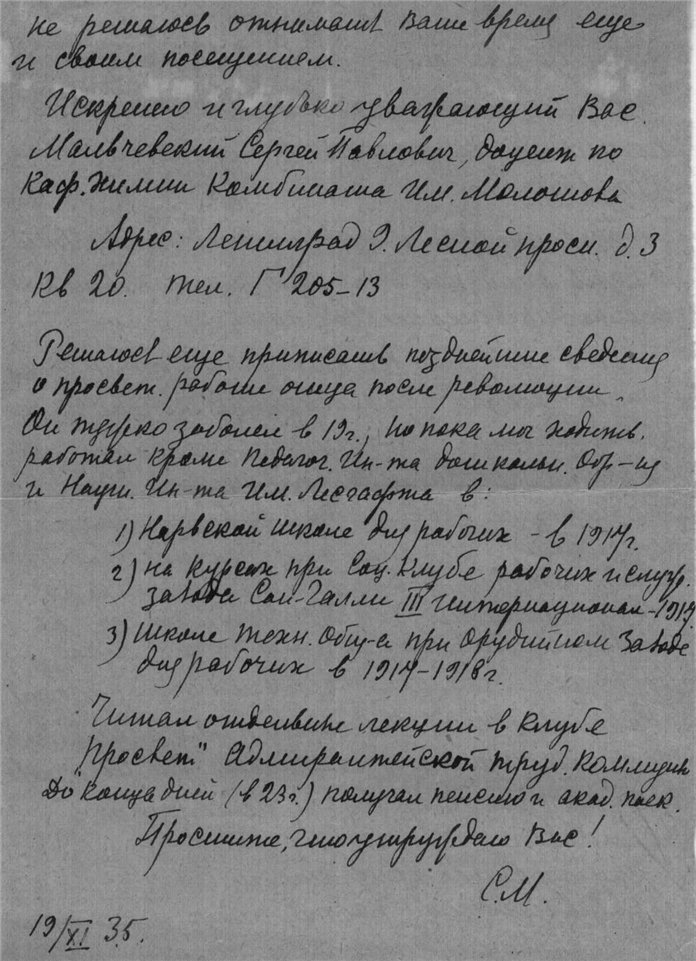 не решаюсь отнимать Ваше время еще
и своим посещением.
Искренно и глубоко уважающий Вас
Мальчевский Сергей Павлович, доцент по
Каф. Химии Комбината Им. Молотова
Адрес: Ленинград 9. Лесной просп. д. 3
кв 20. тел. Г 205-13
Решаюсь еще приписать позднейшие сведения
о просвет. работе отца после революции.
Он тяжко заболел в 19г., но пока мог ходить,
работал кроме Педагог. Ин-та дошкольн. Обр-ия
и Научн. Ин-та Им. Лесгафта в:
1) Нарвской школе для рабочих - в 1917г.
2) на курсах при Соц. Клубе рабочих и служ.
завода Сан-Галли III интернационал - 1917.
3) Школе техн. Общ-а при Орудийном заводе
для рабочих в 1917-1918г.
Читал отдельные лекции в клубе
"Просвет" Адмиралтейской труд. Коммуны
До конца дней (в 23г.) получал пенсию и акад. паек.
Простите, что утруждаю Вас!
С.М.
19/XI 35.